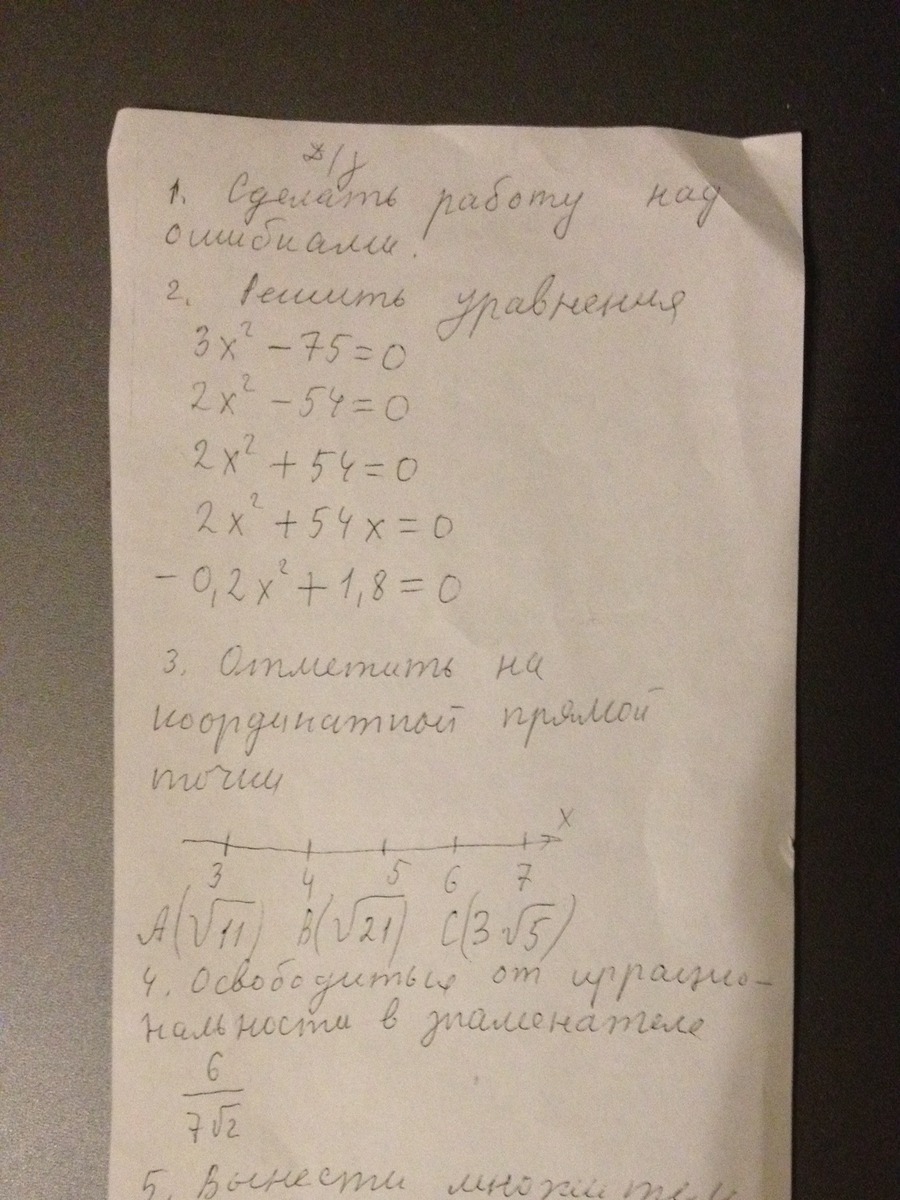 Д/з
1. Сделать работу над
ошибками.
2. Решить уравнения
3x² - 75 = 0
2x² - 54 = 0
2x² + 54 = 0
2x² + 54x = 0
- 0,2x² + 1,8 = 0
3. Отметить на
координатной прямой
точки
x
3 4 5 6 7
A(√11) B(√21) C(3√5)
4. Освободиться от иррацио-
нальности в знаменателе
6/7√2
5. Вынести